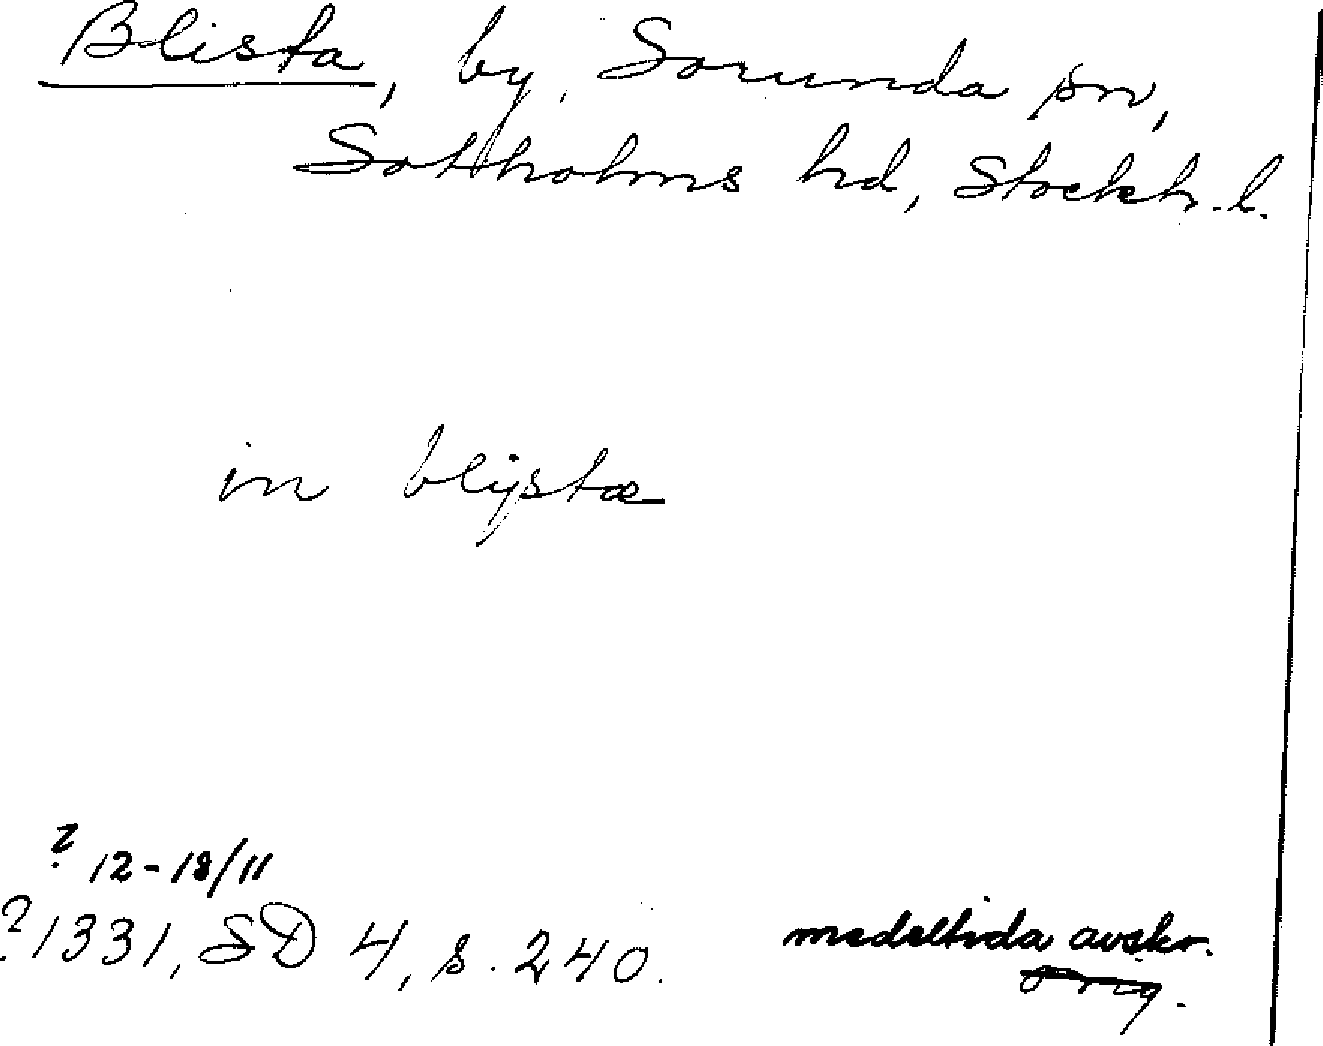 Blista, by, Sorunda sn,
Sotholms hd, Stockh. l.
in blijstæ
? 12-18/11
? 1331, SD 4, s. 240.
medeltida avskr.
Orig.